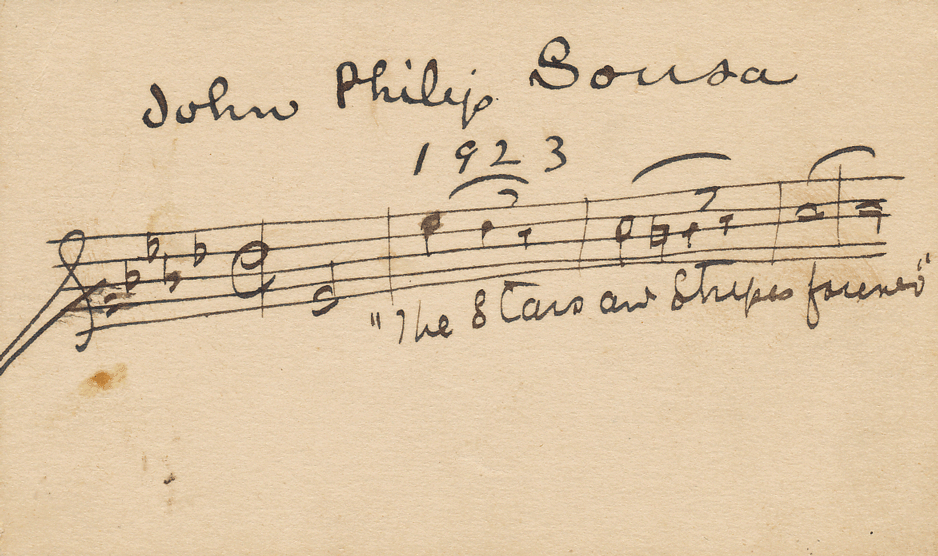 John Philip Sousa
1923
"The Stars and Stripes forever"